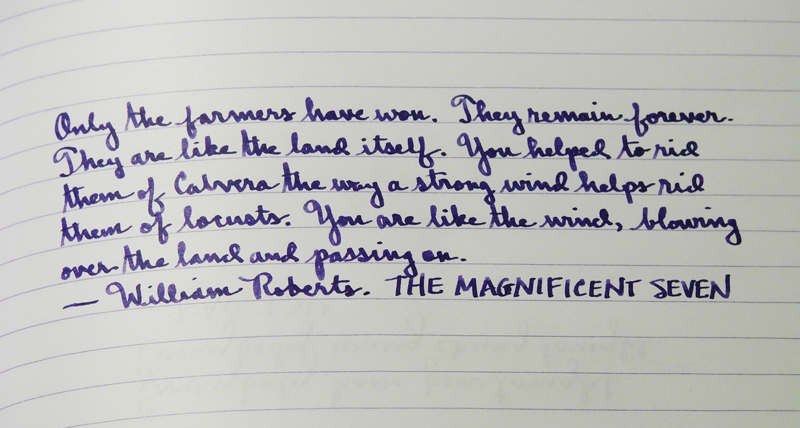 Only the farmers have won. They remain forever.
They are like the land itself. You helped to rid
them of Calvera the way a strong wind helps rid
them of locusts. You are like the wind, blowing
over the land and passing on.
— William Roberts. THE MAGNIFICENT SEVEN